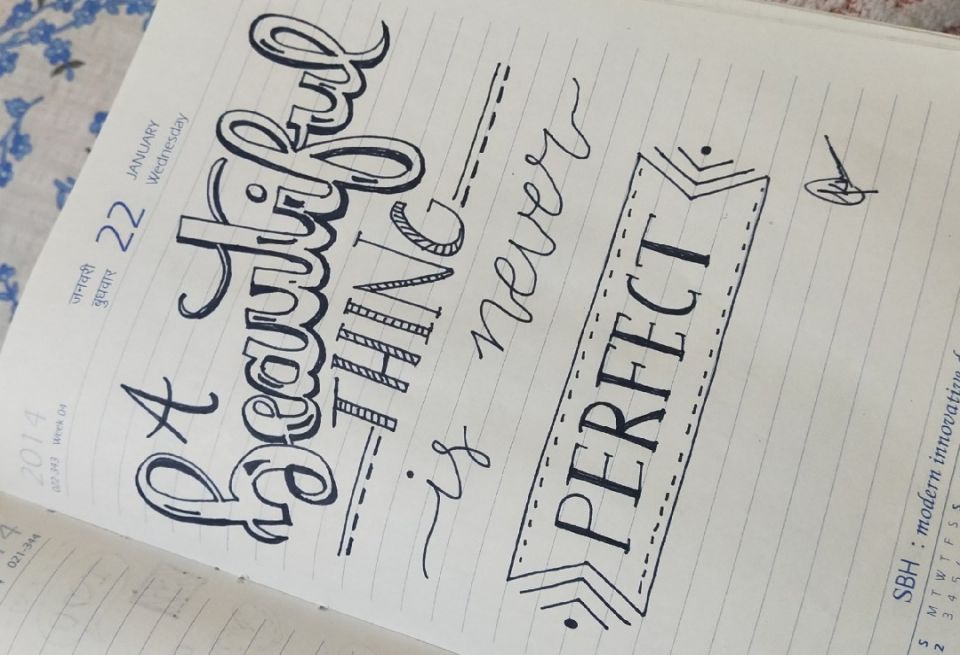 2014
022-343 Week 04
जनवरी
बुधवार
22
JANUARY
Wednesday
A
Beautiful
THING
is never
PERFECT
SBH : modern innovative
S M T W T F S S
2 3 4 5
4
021-344